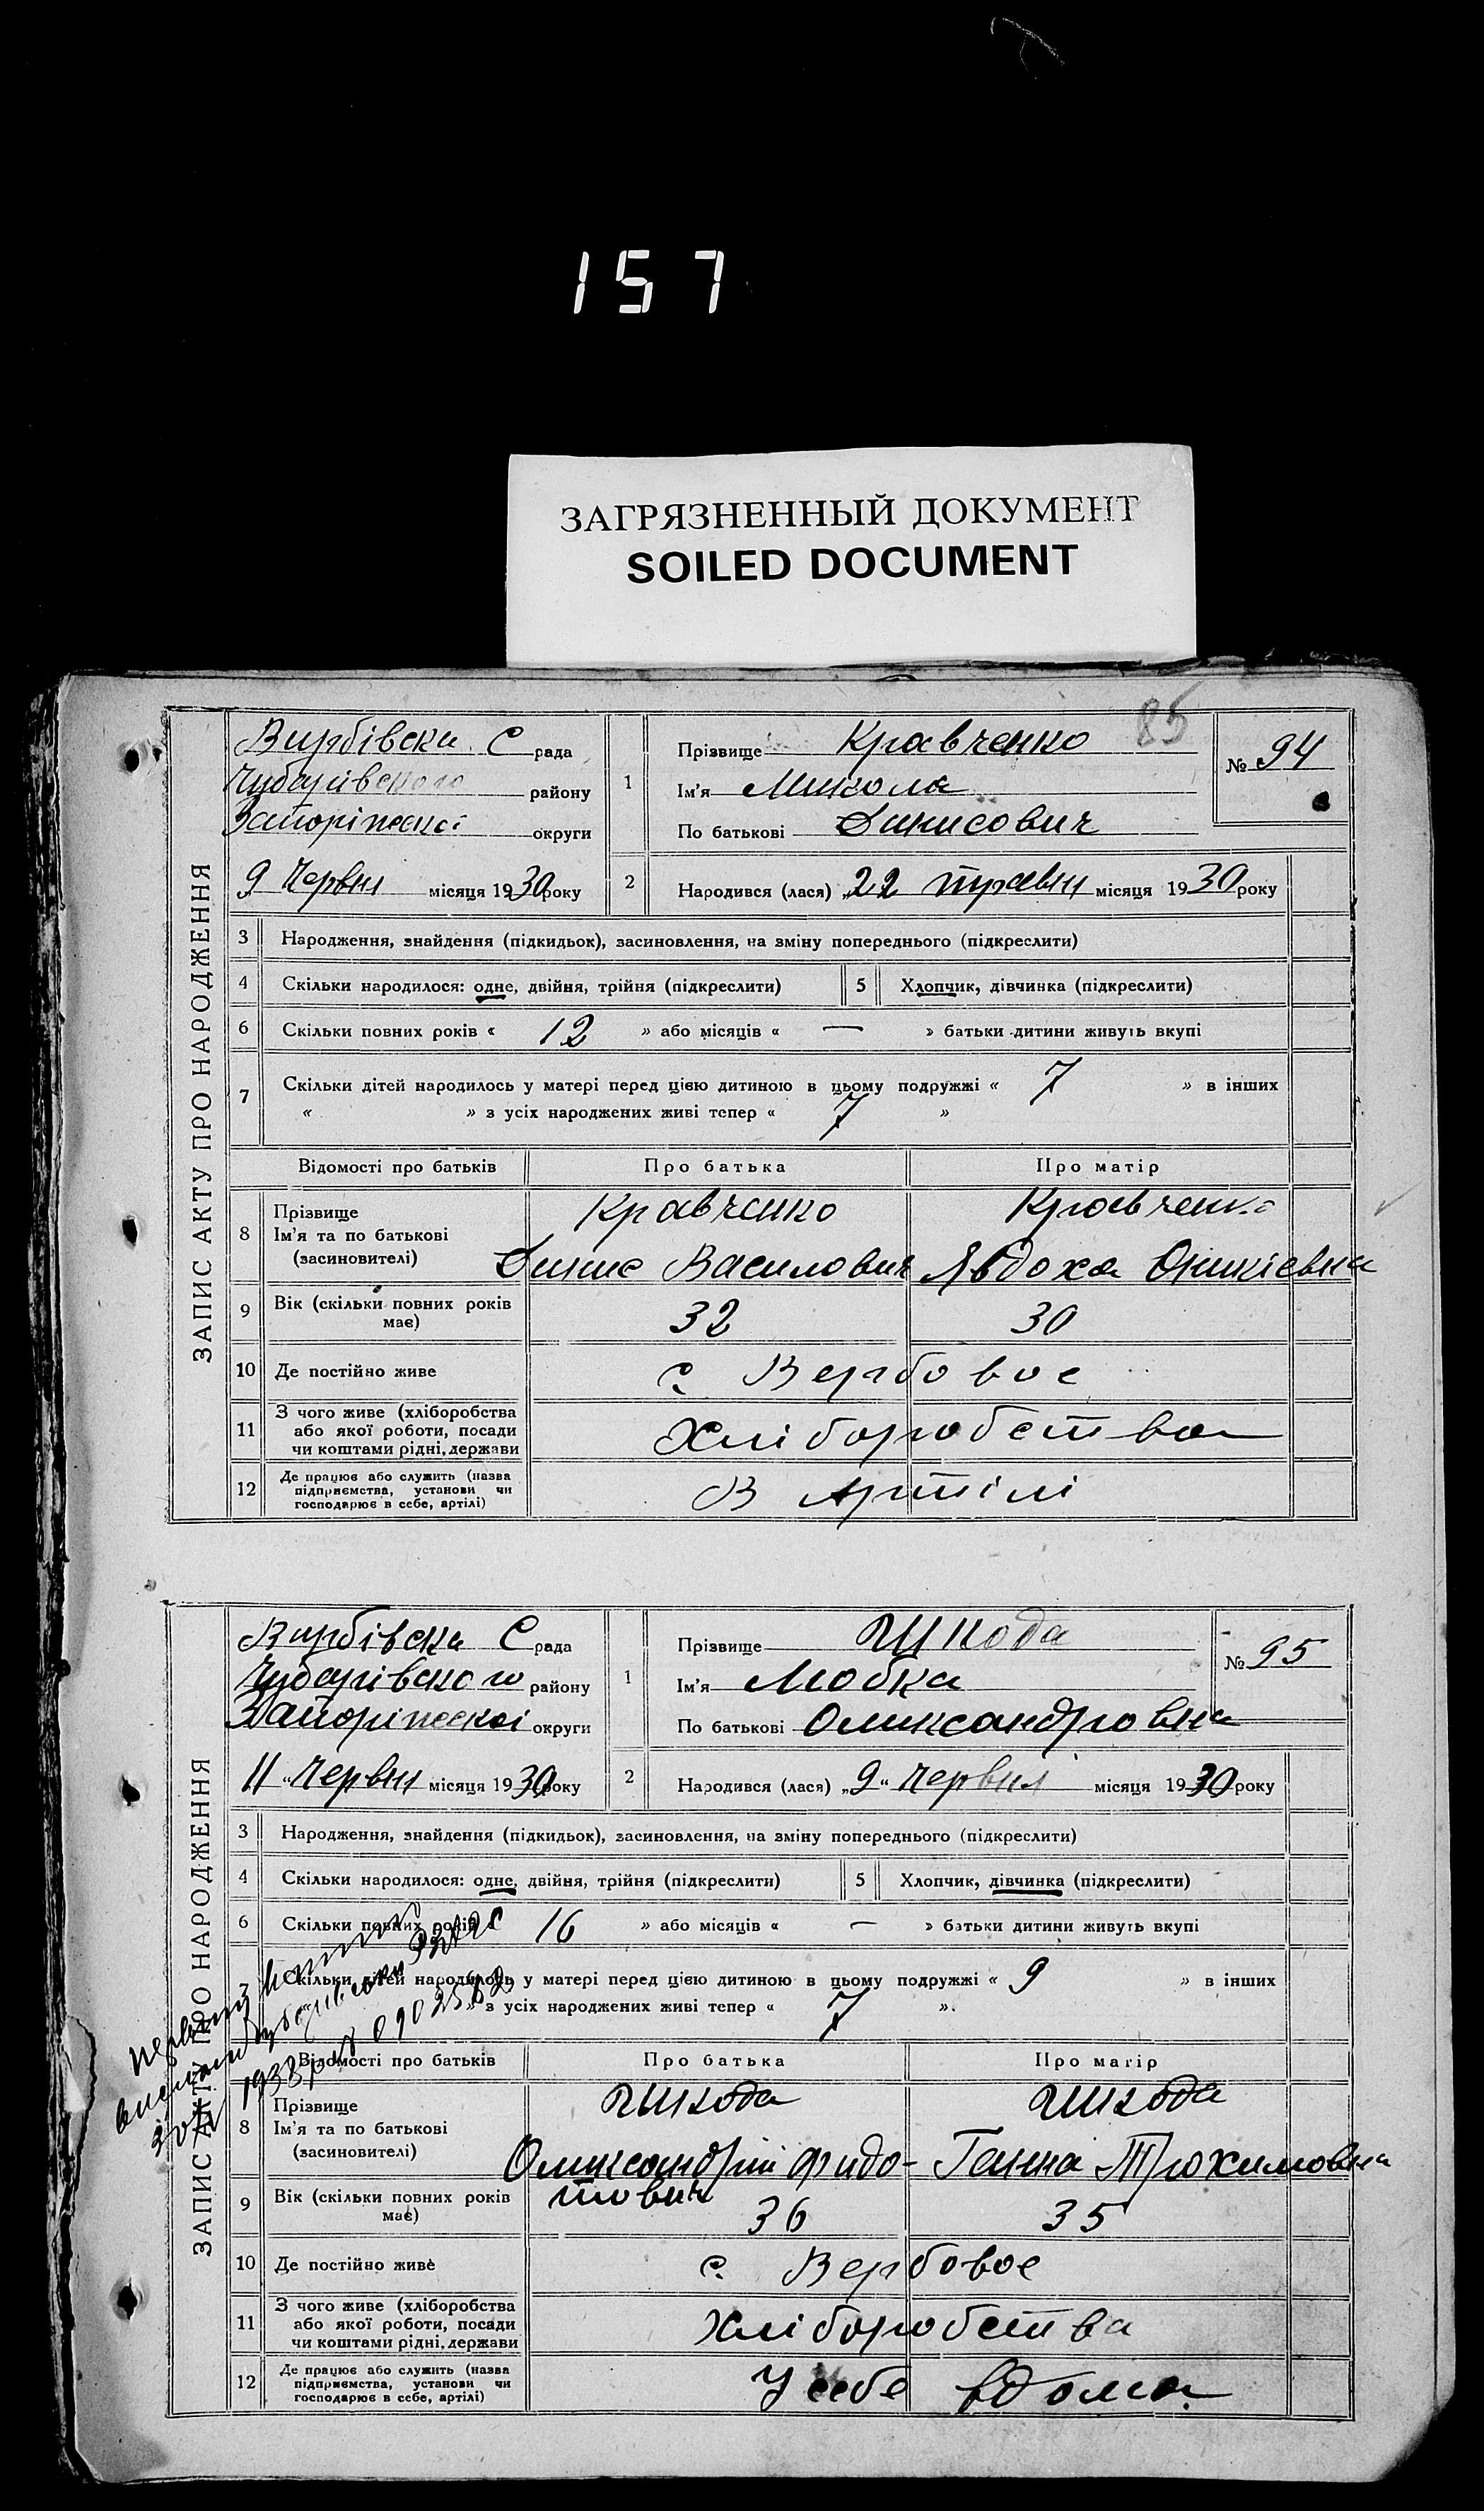 157
ЗАГРЯЗНЕННЫЙ ДОКУМЕНТ
SOILED DOCUMENT
85
ЗАПИС АКТУ ПРО НАРОДЖЕННЯ
Вирбівска С рада
Чубарівского району
Запоріжскоі округи
9 Червня місяця 1930 року
1 Прізвище Кравченко
Ім'я Микола
По батькові Динисович
№ 94
2 Народився (лася) „22 травня місяця 1930 року
3 Народження, знайдення (підкидьок), засиновлення, на зміну попереднього (підкреслити)
4 Скільки народилося: одне, двійня, трійня (підкреслити) 5 Хлопчик, дівчинка (підкреслити)
6 Скільки повних років « 12 » або місяців « — » батьки дитини живуть вкупі
7 Скільки дітей народилось у матері перед цією дитиною в цьому подружжі « 7 » в інших
« » з усіх народжених живі тепер « 7 »
Відомості про батьків Про батька Про матір
8 Прізвище Кравченко Кравченко
Ім'я та по батькові
(засиновителі) Динис Василович Явдоха Оникіевна
9 Вік (скільки повних років
має) 32 30
10 Де постійно живе с. Вербовое
11 З чого живе (хліборобства
або якої роботи, посади
чи коштами рідні, держави Хліборобства
12 Де працює або служить (назва
підприємства, установи чи
господарює в себе, артілі) В Артілі
ЗАПИС АКТУ ПРО НАРОДЖЕННЯ
Вирбівска С рада
Чубарівского району
Запоріжскоі округи
11 „ Червня місяця 1930 року
1 Прізвище Шкода
Ім'я Любка
По батькові Олександровна
№ 95
2 Народився (лася) „9“ Червня місяця 1930 року
3 Народження, знайдення (підкидьок), засиновлення, на зміну попереднього (підкреслити)
4 Скільки народилося: одне, двійня, трійня (підкреслити) 5 Хлопчик, дівчинка (підкреслити)
6 Скільки повних років « 16 » або місяців « — » батьки дитини живуть вкупі
7 Скільки дітей народилось у матері перед цією дитиною в цьому подружжі « 9 » в інших
» з усіх народжених живі тепер « 7 »
Відомості про батьків Про батька Про матір
8 Прізвище Шкода Шкода
Ім'я та по батькові
(засиновителі) Олександрій Фидо- Ганна Трохимовна
тович
9 Вік (скільки повних років
має) 36 35
10 Де постійно живе с. Вербовое
11 З чого живе (хліборобства
або якої роботи, посади
чи коштами рідні, держави Хліборобства
12 Де працює або служить (назва
підприємства, установи чи
господарює в себе, артілі) У себе вдома